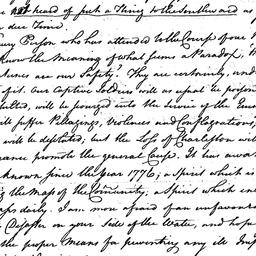 heard of such a Thing to the southward as
due Time.
Person who has attended to the Course of our
know the Meaning of what seems a Paradox,
are our Safety? They are certainly, und
of it. Our Captive Soldiers will as usual be poison
will be pouged into the Service of the Enem
suffer Pillagings, Violences and Conflagrations;
will be desolated, but the Loss of Charleston will
promote the general Cause. It has awa
known since the Year 1776, a Spirit which is
the Mass of the Community, a Spirit which in
daily. I am more afraid of an unfavoura
Disaster on your side of the Water, and hope
the proper Means for preventing any ill Imp